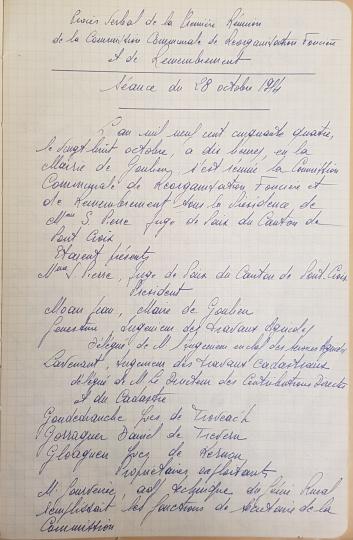 Procès Verbal de la Première Réunion
de la Commission Communale de Réorganisation Foncière
et de Remembrement
Séance du 28 octobre 1954
L'an mil neuf cent cinquante quatre,
le vingt huit octobre, à dix heures, en la
Mairie de Goulien, s'est réunie la Commission
Communale de Réorganisation Foncière et
de Remembrement sous la Présidence de
Mme S Pierre Juge de Paix du Canton de
Pont Croix
Étaient présents
Mme S Pierre, Juge de Paix du Canton de Pont Croix
Président
Moan Jean, Maire de Goulien
Ingénieur des Travaux Agricoles
délégué de M. l'Ingénieur en chef des Services Agricoles
Lavenant, Ingénieur des Travaux Cadastraux
délégué de M. le Directeur des Contributions Directes
et du Cadastre
Goudedranche Yves de
Gorraguer Daniel de
Gloaguen Yves de Kernon
Propriétaires exploitants
M. adj technique du Génie Rural
remplissait les fonctions de Secrétaire de la
Commission